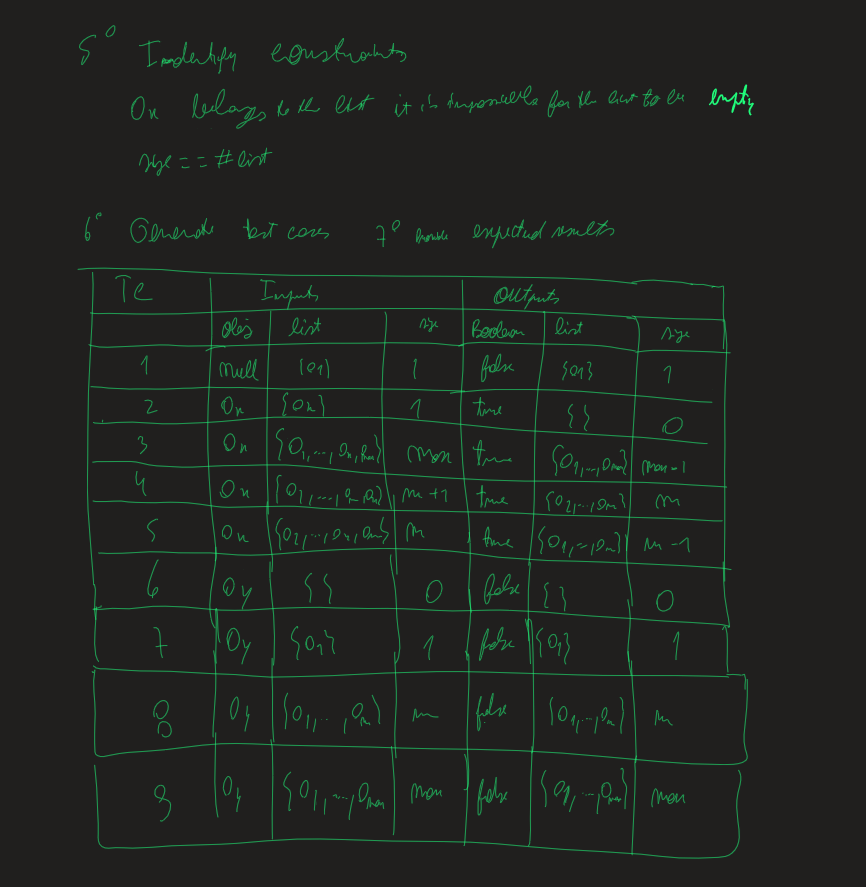 5° Indentify constraints
Ox belongs to the list it is impossible for the list to be empty
size == #list
6° Generate test cases 7° Provide expected results
TC Inputs Outputs
obj list size Boolean list size
1 null {O1} 1 false {O1} 1
2 Ox {Ox} 1 true {} 0
3 Ox {O1,..., Ox, Omax} max true {O1,..., Omax} max-1
4 Ox n+1 true n
5 Ox n true n-1
6 Oy {} 0 false {} 0
7 Oy {O1} 1 false {O1} 1
8 Oy {O1,..., On} n false {O1,..., On} n
9 Oy {O1,..., Omax max false {O1,..., Omax} max